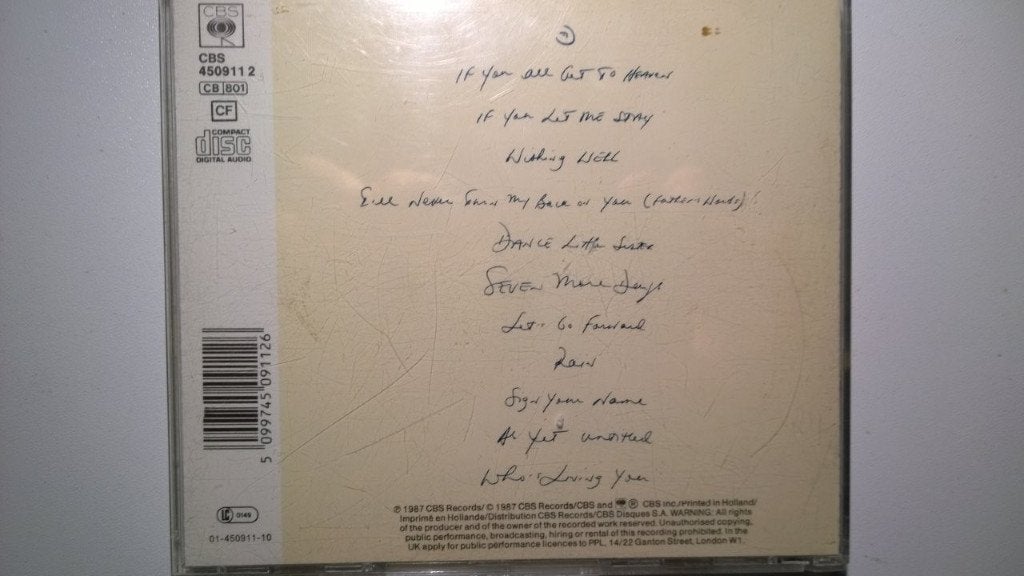 CBS
CBS
450911 2
CB 801
CF
COMPACT
disc
DIGITAL AUDIO
If You All Get To Heaven
If You Let Me Stay
Wishing Well
I'll Never Turn My Back on You (Father's Words)
Dance Little Sister
Seven More Days
Let's Go Forward
Rain
Sign Your Name
As Yet Untitled
Who's Loving You
5 099745 091126
LC 0149
01-450911-10
℗ 1987 CBS Records/ © 1987 CBS Records/CBS and ® CBS Inc./Printed in Holland/
Imprimé en Hollande/Distribution CBS Records/CBS Disques S.A. WARNING: All rights
of the producer and of the owner of the recorded work reserved. Unauthorised copying,
public performance, broadcasting, hiring or rental of this recording prohibited. In the
UK apply for public performance licences to PPL, 14/22 Ganton Street, London W1.